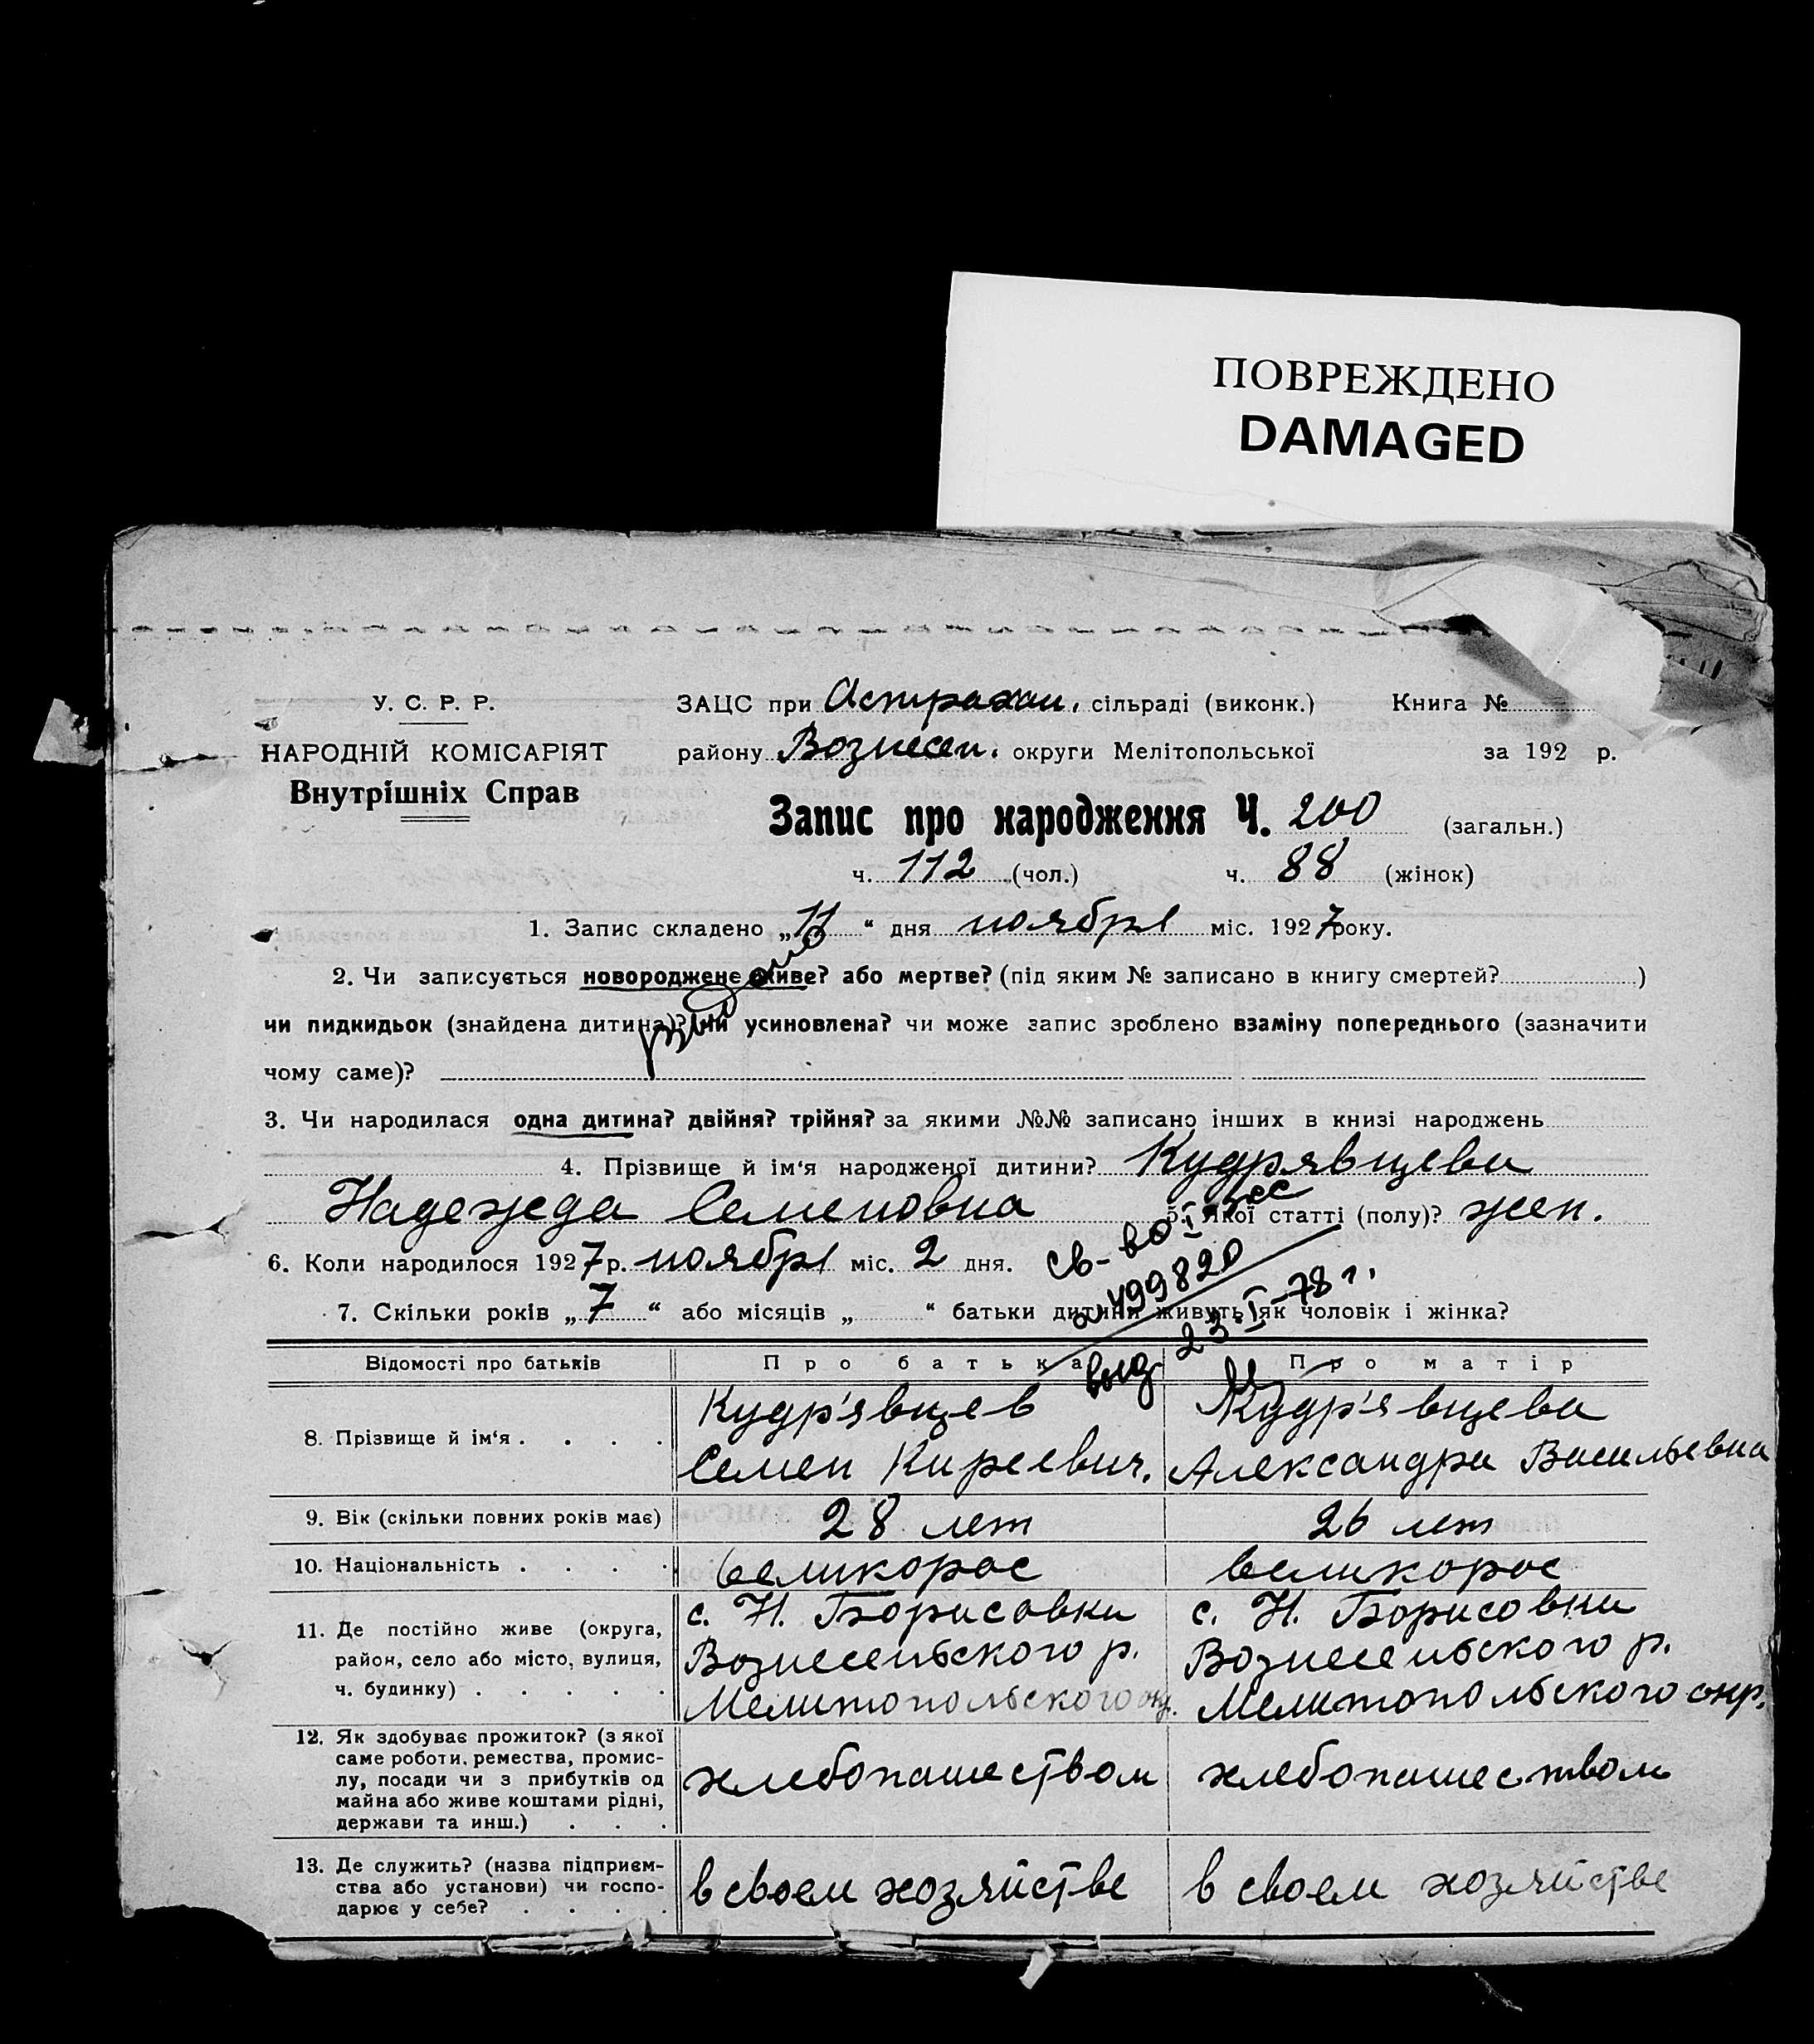 ПОВРЕЖДЕНО
DAMAGED
У. С. Р. Р.
НАРОДНІЙ КОМІСАРІЯТ
Внутрішніх Справ
ЗАЦС при Астрахан. сільраді (виконк.) Книга №
району Вознесен. округи Мелітопольської за 192 р.
Запис про народження Ч. 200 (загальн.)
ч. 112 (чол.) ч. 88 (жінок)
1. Запис складено „11“ дня ноября міс. 1927 року.
2. Чи записується новороджене живе? або мертве? (під яким № записано в книгу смертей? )
чи пидкидьок (знайдена дитина)? чи усиновлена? чи може запис зроблено взаміну попереднього (зазначити
чому саме)?
3. Чи народилася одна дитина? двійня? трійня? за якими №№ записано інших в книзі народжень
4. Прізвище й ім‘я народженої дитини? Кудрявцева
Надежда Семеновна 5. Якої статті (полу)? жен.
6. Коли народилося 1927 р. ноября міс. 2 дня.
св-во I
499820
выд. 23-I-78 г.
7. Скільки років „7“ або місяців „ “ батьки дитини живуть як чоловік і жінка?
Відомості про батьків Про батька Про матір
8. Прізвище й ім‘я . . . .
Кудр'явцев
Семен Киреевич.
Кудр'явцева
Александра Васильевна
9. Вік (скільки повних років має) 28 лет 26 лет
10. Національність . . . . великорос великорос
11. Де постійно живе (округа,
район, село або місто, вулиця,
ч. будинку) . . . . .
с. Н. Борисовки
Вознесенського р.
Мелитопольского окр.
с. Н. Борисовки
Вознесенського р.
Мелитопольского окр.
12. Як здобуває прожиток? (з якої
саме роботи, ремества, промис-
лу, посади чи з прибутків од
майна або живе коштами рідні,
держави та инш.) . . .
хлебопашеством хлебопашеством
13. Де служить? (назва підприєм-
ства або установи) чи госпо-
дарює у себе? . . . .
в своем хозяйстве в своем хозяйстве